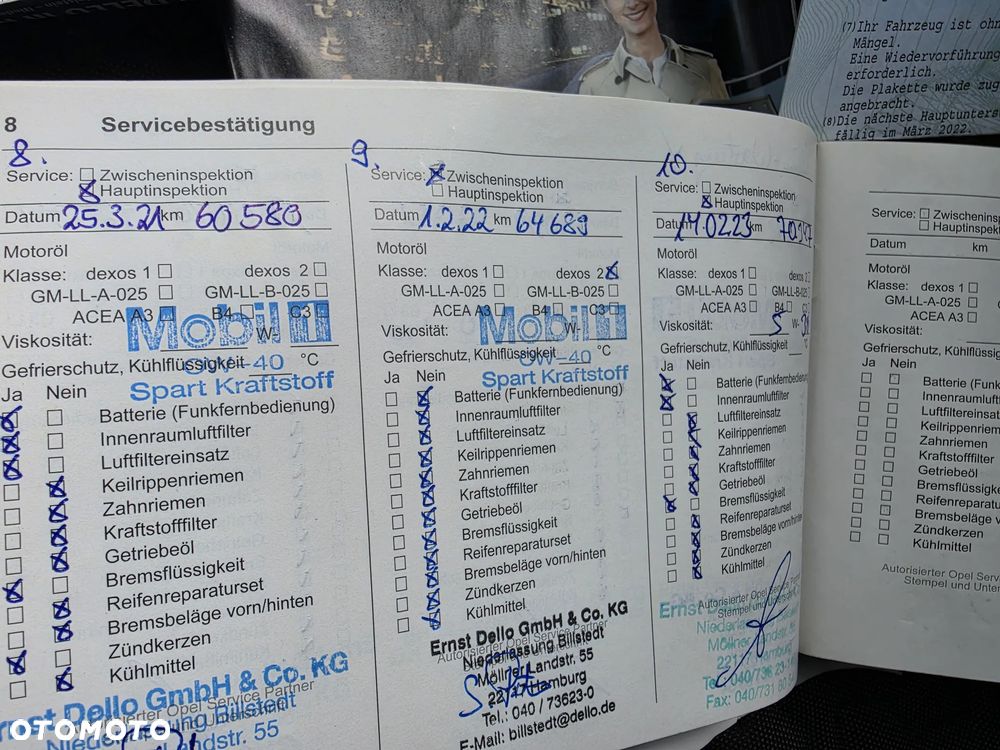 (7)Ihr Fahrzeug ist ohn
Mängel.
Eine Wiedervorführun
erforderlich.
Die Plakette wurde zug
angebracht.
(8)Die nächste Hauptunters
fällig im März 2022.
8 Servicebestätigung
8.
Service: Zwischeninspektion
Hauptinspektion
Datum 25.3.21 km 60 580
Motoröl
Klasse: dexos 1 dexos 2
GM-LL-A-025 GM-LL-B-025
ACEA A3 B4 C3
Mobil 1
Viskosität: W-
0W-40
Gefrierschutz, Kühlflüssigkeit °C
Spart Kraftstoff
Ja Nein
Batterie (Funkfernbedienung)
Innenraumluftfilter
Luftfiltereinsatz
Keilrippenriemen
Zahnriemen
Kraftstofffilter
Getriebeöl
Bremsflüssigkeit
Reifenreparaturset
Bremsbeläge vorn/hinten
Zündkerzen
Kühlmittel
rnst Dello GmbH & Co. KG
Autorisierter Opel Service Partner
Niederlassung Billstedt
Landstr. 55
9.
Service: Zwischeninspektion
Hauptinspektion
Datum 1.2.22 km 64 689
Motoröl
Klasse: dexos 1 dexos 2
GM-LL-A-025 GM-LL-B-025
ACEA A3 B4 C3
Mobil 1
Viskosität: W-
0W-40
Gefrierschutz, Kühlflüssigkeit °C
Spart Kraftstoff
Ja Nein
Batterie (Funkfernbedienung)
Innenraumluftfilter
Luftfiltereinsatz
Keilrippenriemen
Zahnriemen
Kraftstofffilter
Getriebeöl
Bremsflüssigkeit
Reifenreparaturset
Bremsbeläge vorn/hinten
Zündkerzen
Kühlmittel
Ernst Dello GmbH & Co. KG
Autorisierter Opel Service Partner
Niederlassung Billstedt
Möllner Landstr. 55
22117 Hamburg
Tel.: 040 / 73623-0
E-Mail: billstedt@dello.de
10.
Service: Zwischeninspektion
Hauptinspektion
Datum 14.02.23 km
Motoröl
Klasse: dexos 1 dexos 2
GM-LL-A-025 GM-LL-B-025
ACEA A3 B4 C3
Viskosität: 5 W-
Gefrierschutz, Kühlflüssigkeit °C
Ja Nein
Batterie (Funkfernbedienung
Innenraumluftfilter
Luftfiltereinsatz
Keilrippenriemen
Zahnriemen
Kraftstofffilter
Getriebeöl
Bremsflüssigkeit
Reifenreparaturset
Bremsbeläge vorn/hinten
Zündkerzen
Kühlmittel
Autorisierter Opel Service Partner
Stempel und Unterschrift
Ernst
Möllner Landstr. 55
22117 Hamburg
Tel.: 040/736 23-
Fax: 040/731 80 5
Service: Zwischeninspekt
Hauptinspekti
Datum km
Motoröl
Klasse: dexos 1
GM-LL-A-025
ACEA A3
Viskosität:
Gefrierschutz, Kühlflüss
Ja Nein
Batterie (Funkf
Innenraumluftf
Luftfiltereinsatz
Keilrippenriemen
Zahnriemen
Kraftstofffilter
Getriebeöl
Bremsflüssigke
Reifenreparaturs
Bremsbeläge vor
Zündkerzen
Kühlmittel
Autorisierter Opel Serv
Stempel und Unter
OTOMOTO